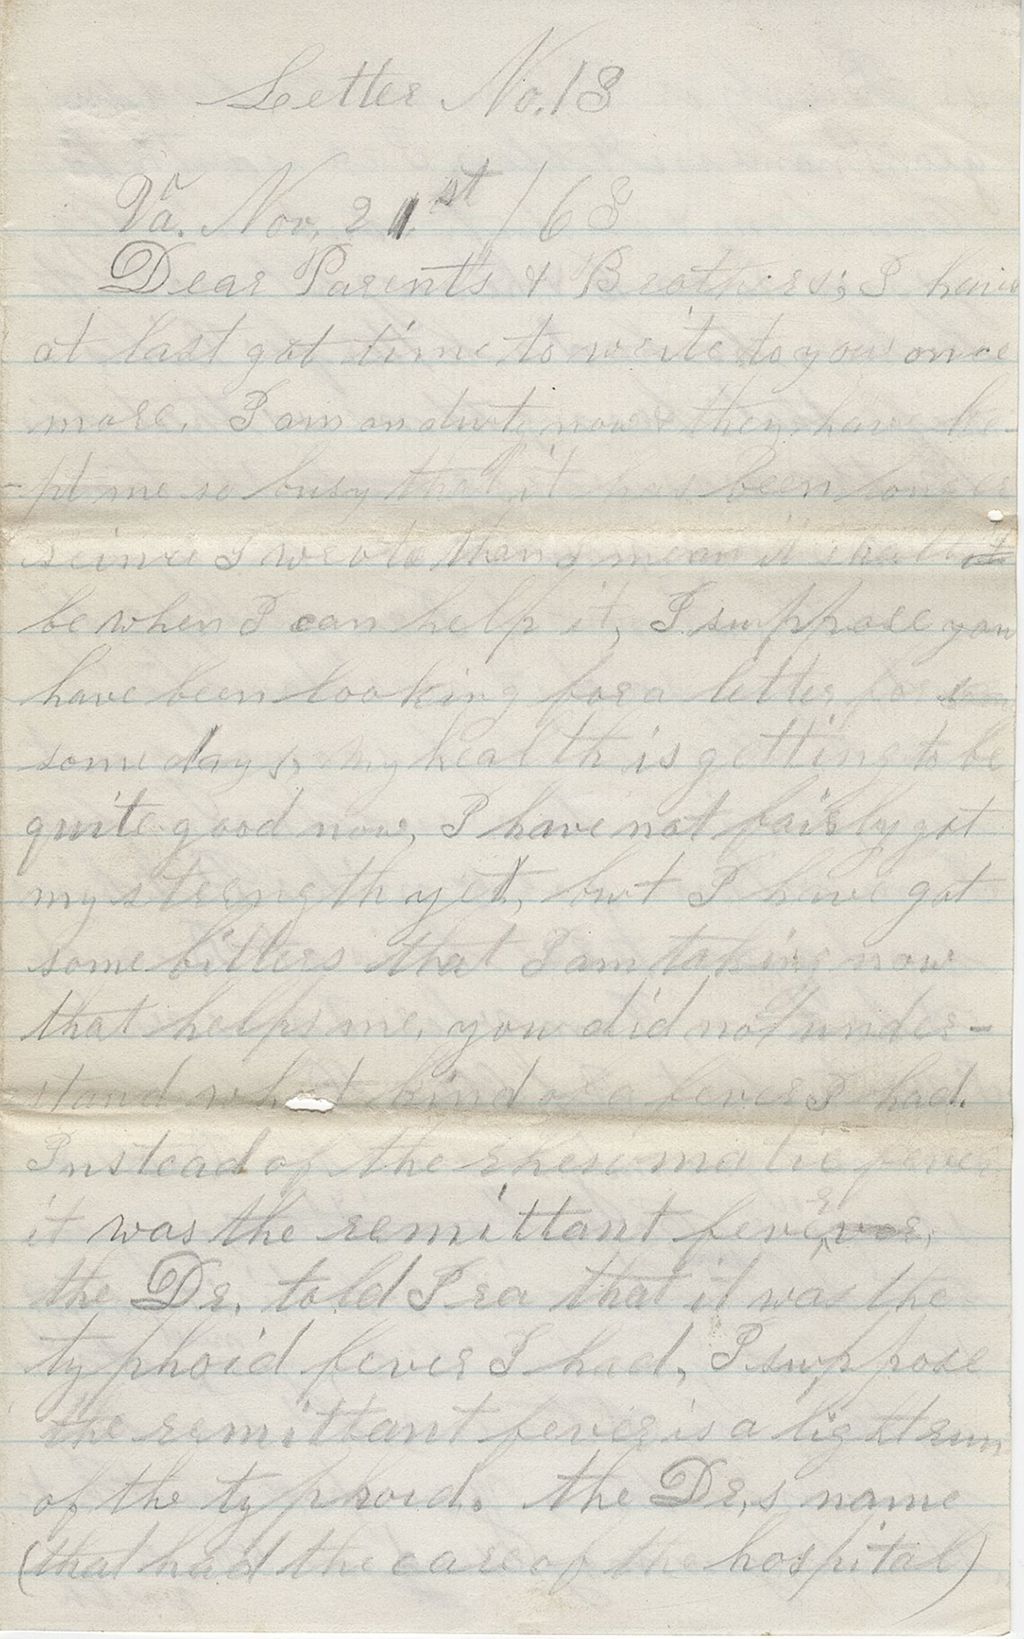 Letter No. 13
Va. Nov. 21st /63
Dear Parents & Brothers; I have
at last got time to write to you once
more. I am on duty now & they have ke-
-pt me so busy that it has been longer
scince I wrote than I mean it shall
be when I can help it, I suppose you
have been looking for a letter for
some days, my health is getting to be
quite good now, I have not fairly got
my strength yet, but I have got
some bitters that I am taking now
that helps me, you did not under-
stand what kind of a fever I had.
Instead of the rheumatic fever
it was the remittant fever,
the Dr. told Ira that it was the
typhoid fever I had, I suppose
the remittant fever is a light run
of the typhoid. the Dr,s name
(that had the care of the hospital)